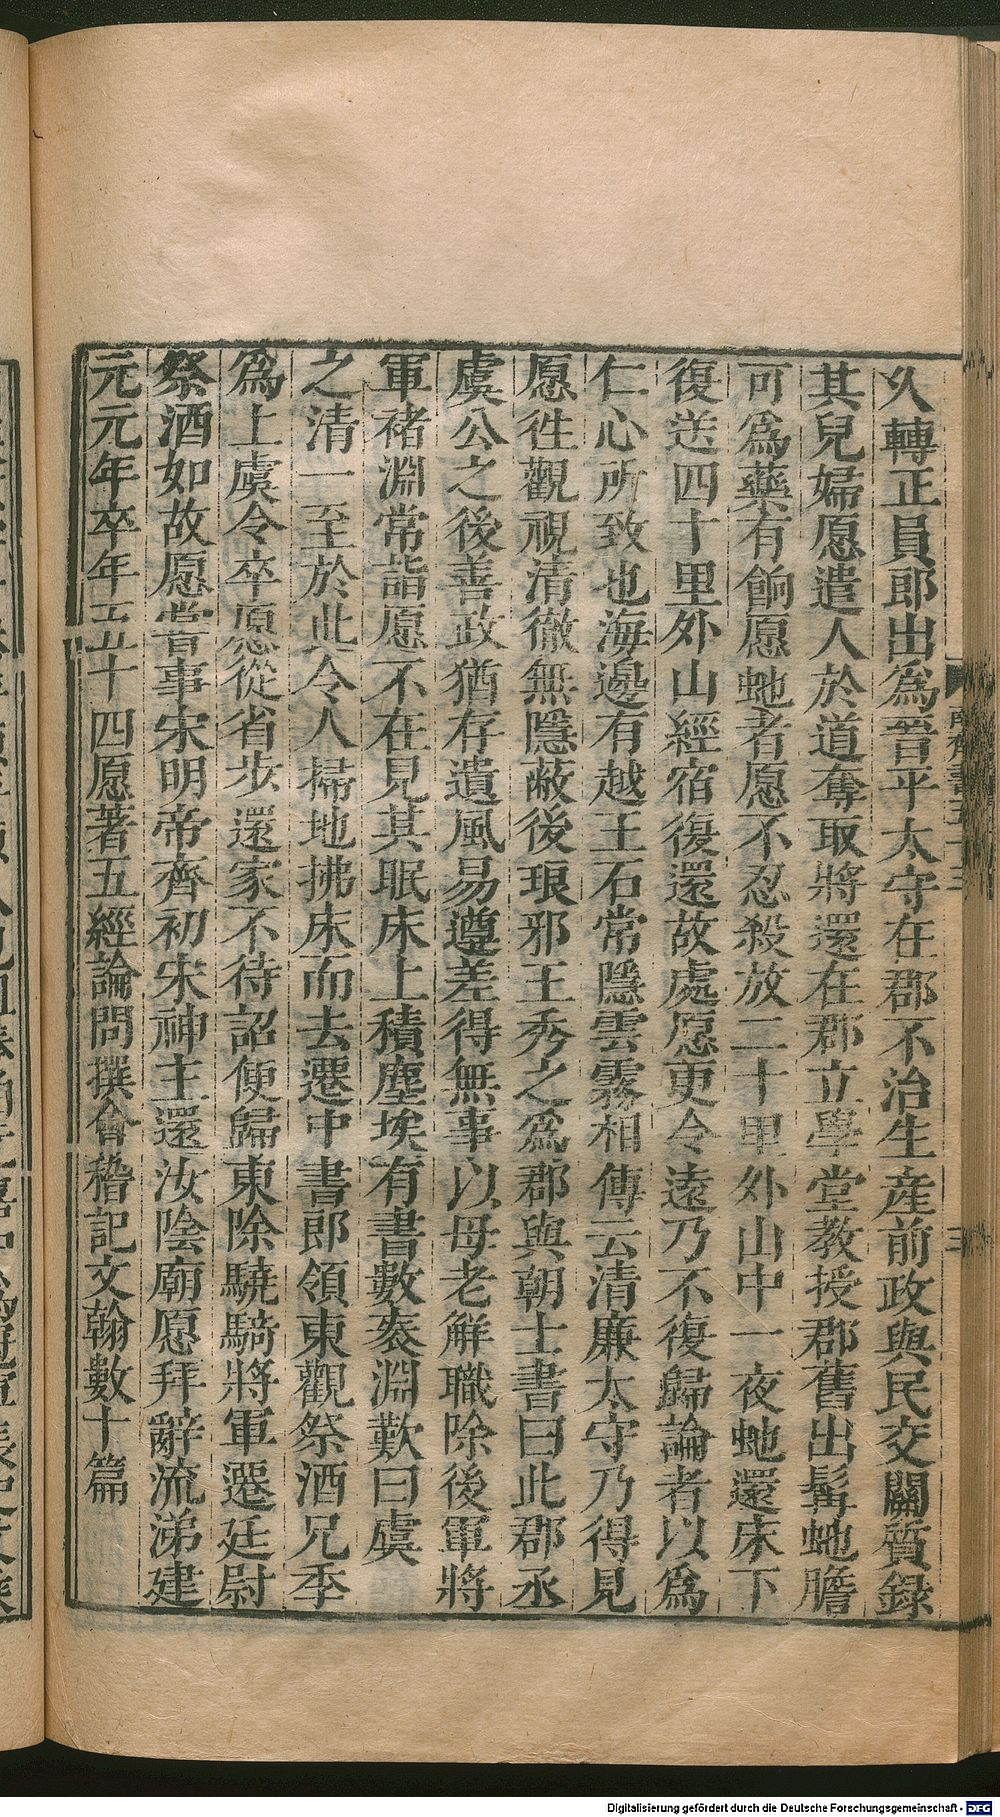 久轉正員郎出爲晉平太守在郡不治生産前政與民交關質録
其兒婦愿遣人於道奪取將還在郡立學堂教授郡舊出髯虵膽
可爲藥有餉愿虵者愿不忍殺放二十里外山中一夜虵還床下
復送四十里外山經宿復還故處愿更令遠乃不復歸論者以爲
仁心所致也海邊有越王石常隱雲霧相傳云清廉太守乃得見
愿徃觀視清徹無隱蔽後琅邪王秀之爲郡與朝士書曰此郡丞
虞公之後善政猶存遺風易遵差得無事以母老解職除後軍將
軍褚淵常詣愿不在見其眠床上積塵埃有書數袠淵歎曰虞
之清一至於此令人掃地拂床而去遷中書郎領東觀祭酒兄季
爲上虞令卒愿從省步還家不待詔便歸東除驍騎將軍遷廷尉
祭酒如故愿嘗事宋明帝齊初宋神主還汝陰廟愿拜辭流涕建
元元年卒年五十四愿著五經論問撰會稽記文翰數十篇
Digitalisierung gefördert durch die Deutsche Forschungsgemeinschaft - DFG